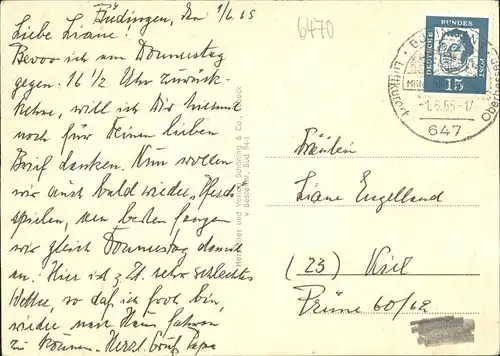 Büdingen, den 1/6.65
Liebe Liane!
Bevor ich am Donnerstag
gegen 16 1/2 Uhr zurück-
kehre, will ich Dir hiermit
noch für Deinen lieben
Brief danken. Nun wollen
wir auch bald wieder
spielen, am besten fangen
wir gleich Donnerstag damit
an. Hier ist z. Zt. sehr schlechtes
Wetter, so daß ich froh bin,
wieder nach Haus fahren
zu können. Herzl. Grüß Papa
6470
Hersteller und Verlag Schöning & Co., Lübeck
DEUTSCHE BUNDES POST
15
Luftkurort
-1.6.65-17
647
Fräulein
Liane Engelland
(23) Kiel
Prüne 60/62